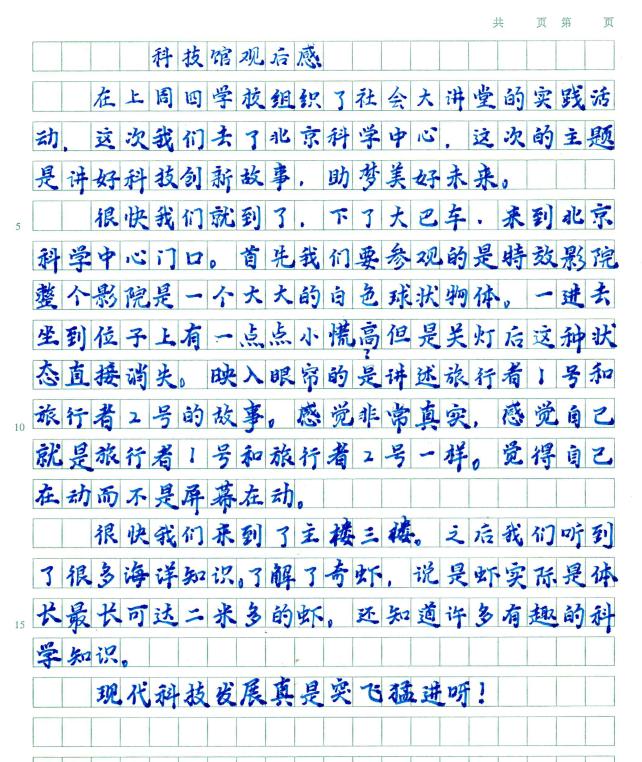 共 页 第 页
科技馆观后感
在上周四学校组织了社会大讲堂的实践活
动，这次我们去了北京科学中心，这次的主题
是讲好科技创新故事，助梦美好未来。
5 很快我们就到了，下了大巴车，来到北京
科学中心门口。首先我们要参观的是特效影院
整个影院是一个大大的白色球状物体。一进去
坐到位子上有一点点小慌高但是关灯后这种状
态直接消失。映入眼帘的是讲述旅行者1号和
10 旅行者2号的故事。感觉非常真实，感觉自己
就是旅行者1号和旅行者2号一样。觉得自己
在动而不是屏幕在动。
很快我们来到了主楼三楼。之后我们听到
了很多海洋知识。了解了奇虾，说是虾实际是体
15 长最长可达二米多的虾。还知道许多有趣的科
学知识。
现代科技发展真是突飞猛进呀！